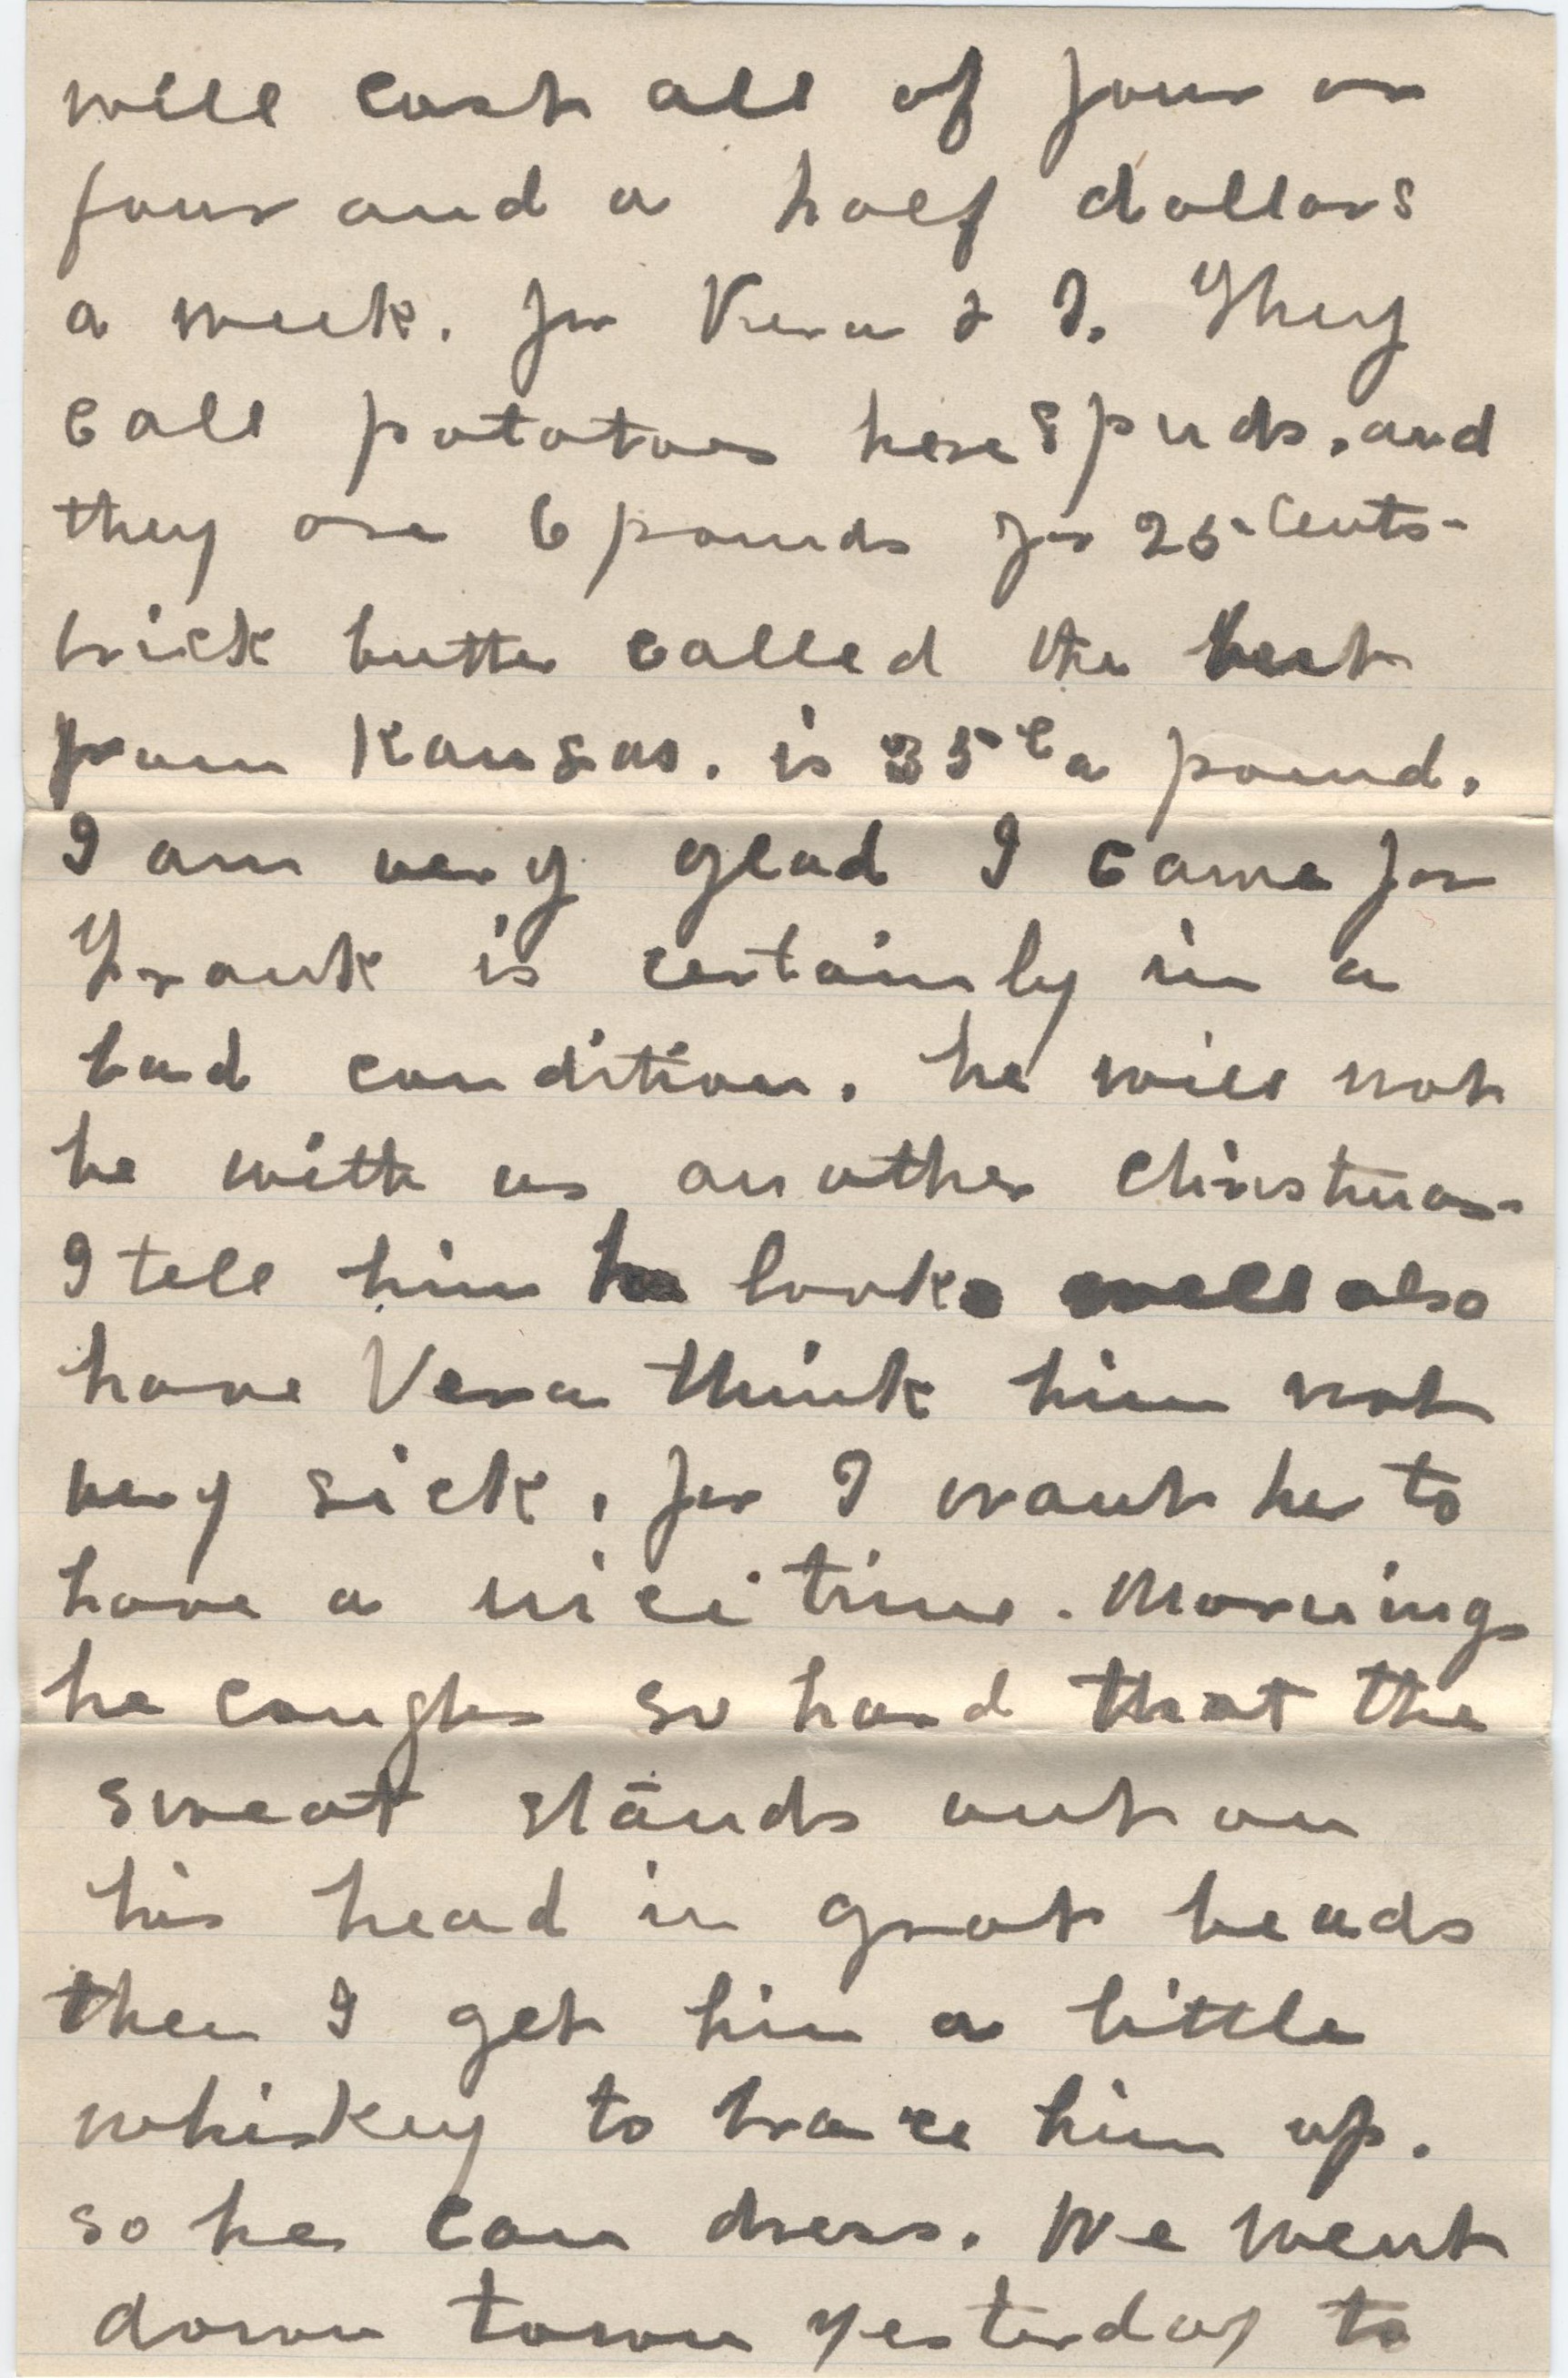 will cost all of four or
four and a half dollars
a week. for Vera & I. They
call potatoes here spuds. and
they are 6 pounds for 25 cents-
brick butter called the best
from Kansas. is 35c a pound.
I am very glad I came for
Frank is certainly in a
bad condition. he will not
be with us another Christmas-
I tell him he looks well also
have Vera think him not
very sick, for I want her to
have a nice time. Mornings
he coughs so hard that the
sweat stands out on
his head in great beads
then I get him a little
whiskey to brace him up.
so he can dress. We went
down town yesterday to